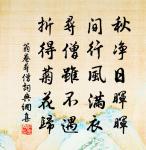 秋净日暉暉
間行風滿衣
尋僧雖不遇
折得菊花歸
翁卷尋僧詞典網集